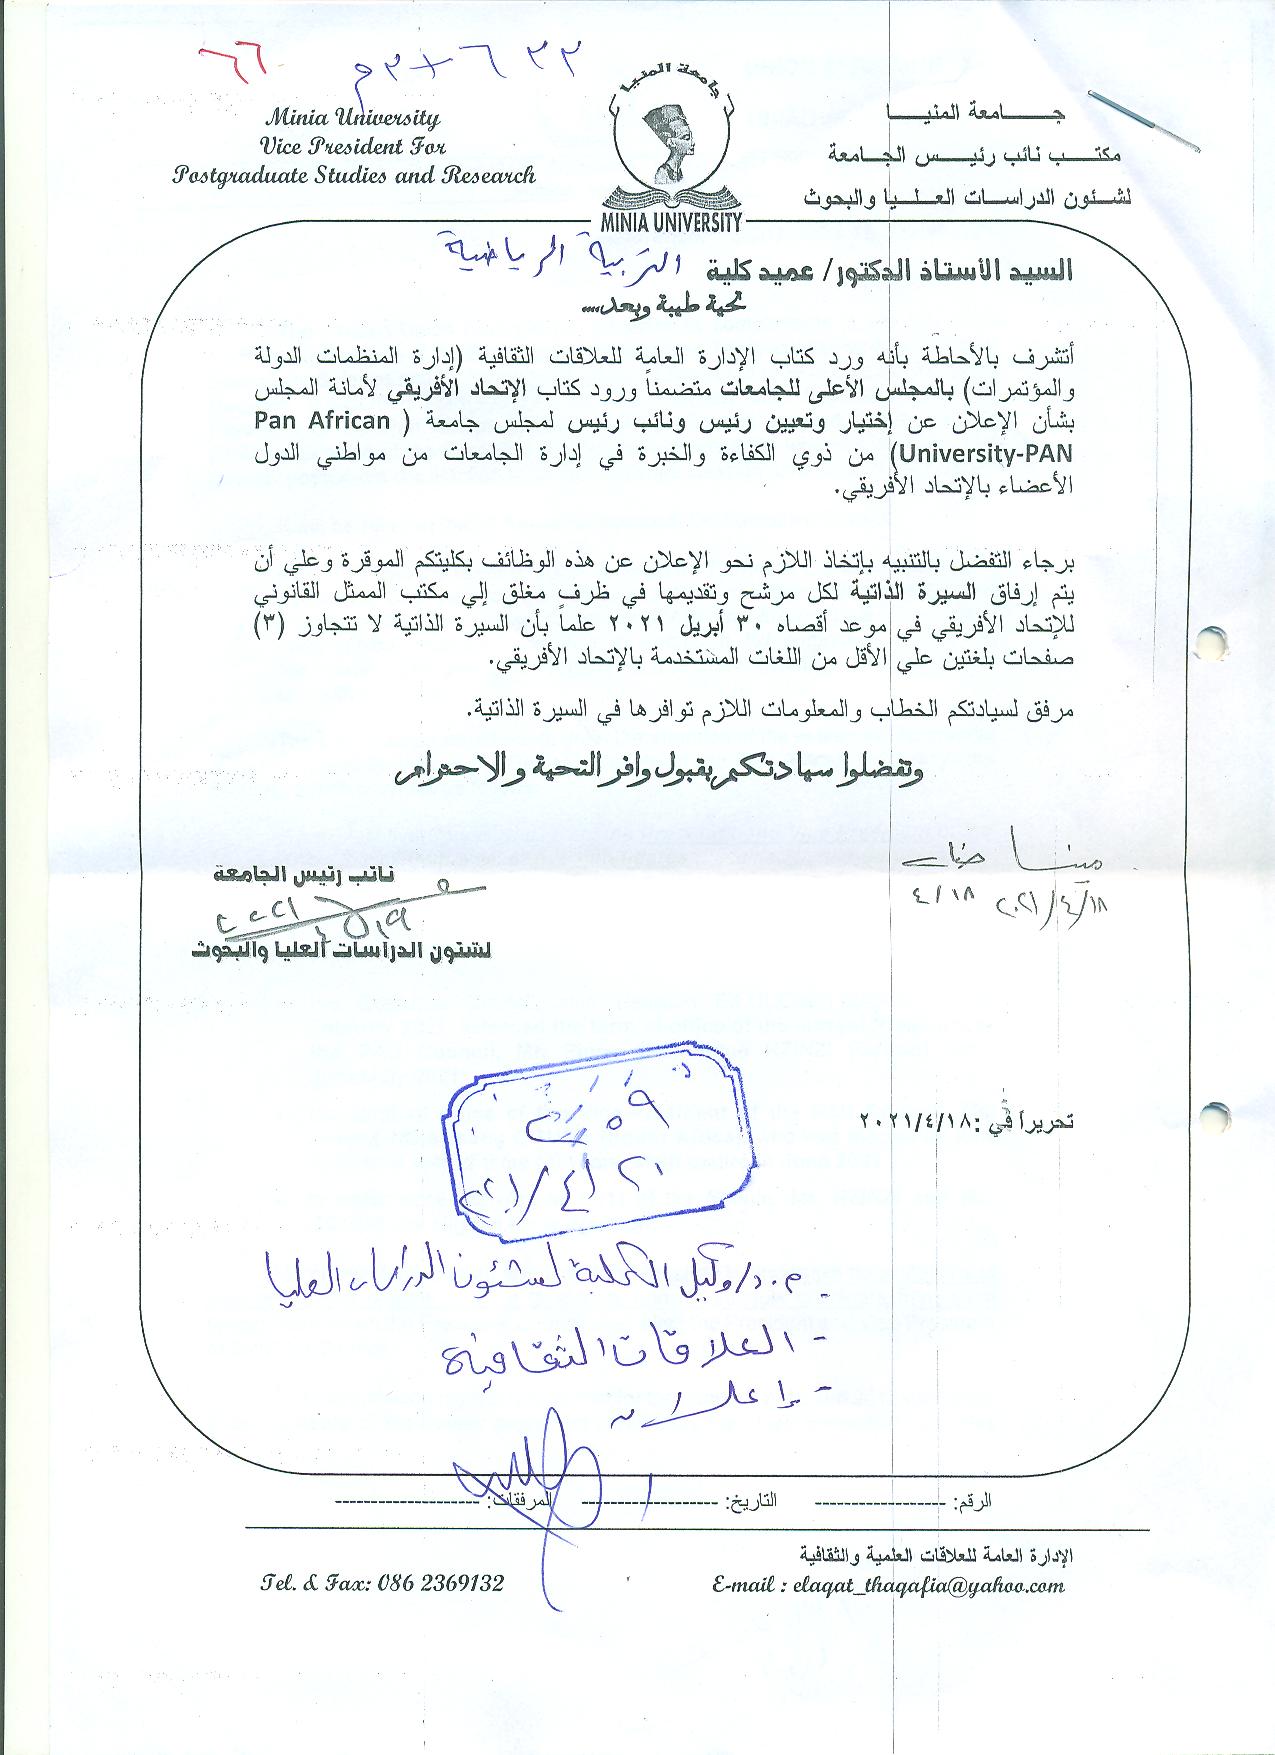 ٦٦
٦٣٣
Minia University
Vice President For
Postgraduate Studies and Research
جامعة المنيا
MINIA UNIVERSITY
جـــــامعة المنيـــــا
مكتـــب نائب رئيـــس الجـامعة
لشـئون الدراسـات العـلـيـا والبحوث
السيد الأستاذ الدكتور/ عميد كلية التربية الرياضية
تحية طيبة وبعد،،،،
أتشرف بالأحاطة بأنه ورد كتاب الإدارة العامة للعلاقات الثقافية (إدارة المنظمات الدولة
والمؤتمرات) بالمجلس الأعلى للجامعات متضمناً ورود كتاب الإتحاد الأفريقي لأمانة المجلس
بشأن الإعلان عن إختيار وتعيين رئيس ونائب رئيس لمجلس جامعة ( Pan African
University-PAN) من ذوي الكفاءة والخبرة في إدارة الجامعات من مواطني الدول
الأعضاء بالإتحاد الأفريقي.
برجاء التفضل بالتنبيه بإتخاذ اللازم نحو الإعلان عن هذه الوظائف بكليتكم الموقرة وعلي أن
يتم إرفاق السيرة الذاتية لكل مرشح وتقديمها في ظرف مغلق إلي مكتب الممثل القانوني
للإتحاد الأفريقي في موعد أقصاه ٣٠ أبريل ٢٠٢١ علماً بأن السيرة الذاتية لا تتجاوز (٣)
صفحات بلغتين علي الأقل من اللغات المستخدمة بالإتحاد الأفريقي.
مرفق لسيادتكم الخطاب والمعلومات اللازم توافرها في السيرة الذاتية.
وتفضلوا سيادتكم بقبول وافر التحية والاحترام
مينا
٢٠٢١/٤/١٨ ٤/١٨
نائب رئيس الجامعة
لشئون الدراسات العليا والبحوث
تحريراً في :٢٠٢١/٤/١٨
٥٩
٢٠٢١/٤/٢٠
م.د/وكيل الكلية لشئون الدراسات العليا
- العلاقات الثقافية
- إعلان
الرقم: ------------------- التاريخ: ------------------- المرفقات: -------------------
الإدارة العامة للعلاقات العلمية والثقافية
E-mail : elaqat_thaqafia@yahoo.com
Tel. & Fax: 086 2369132